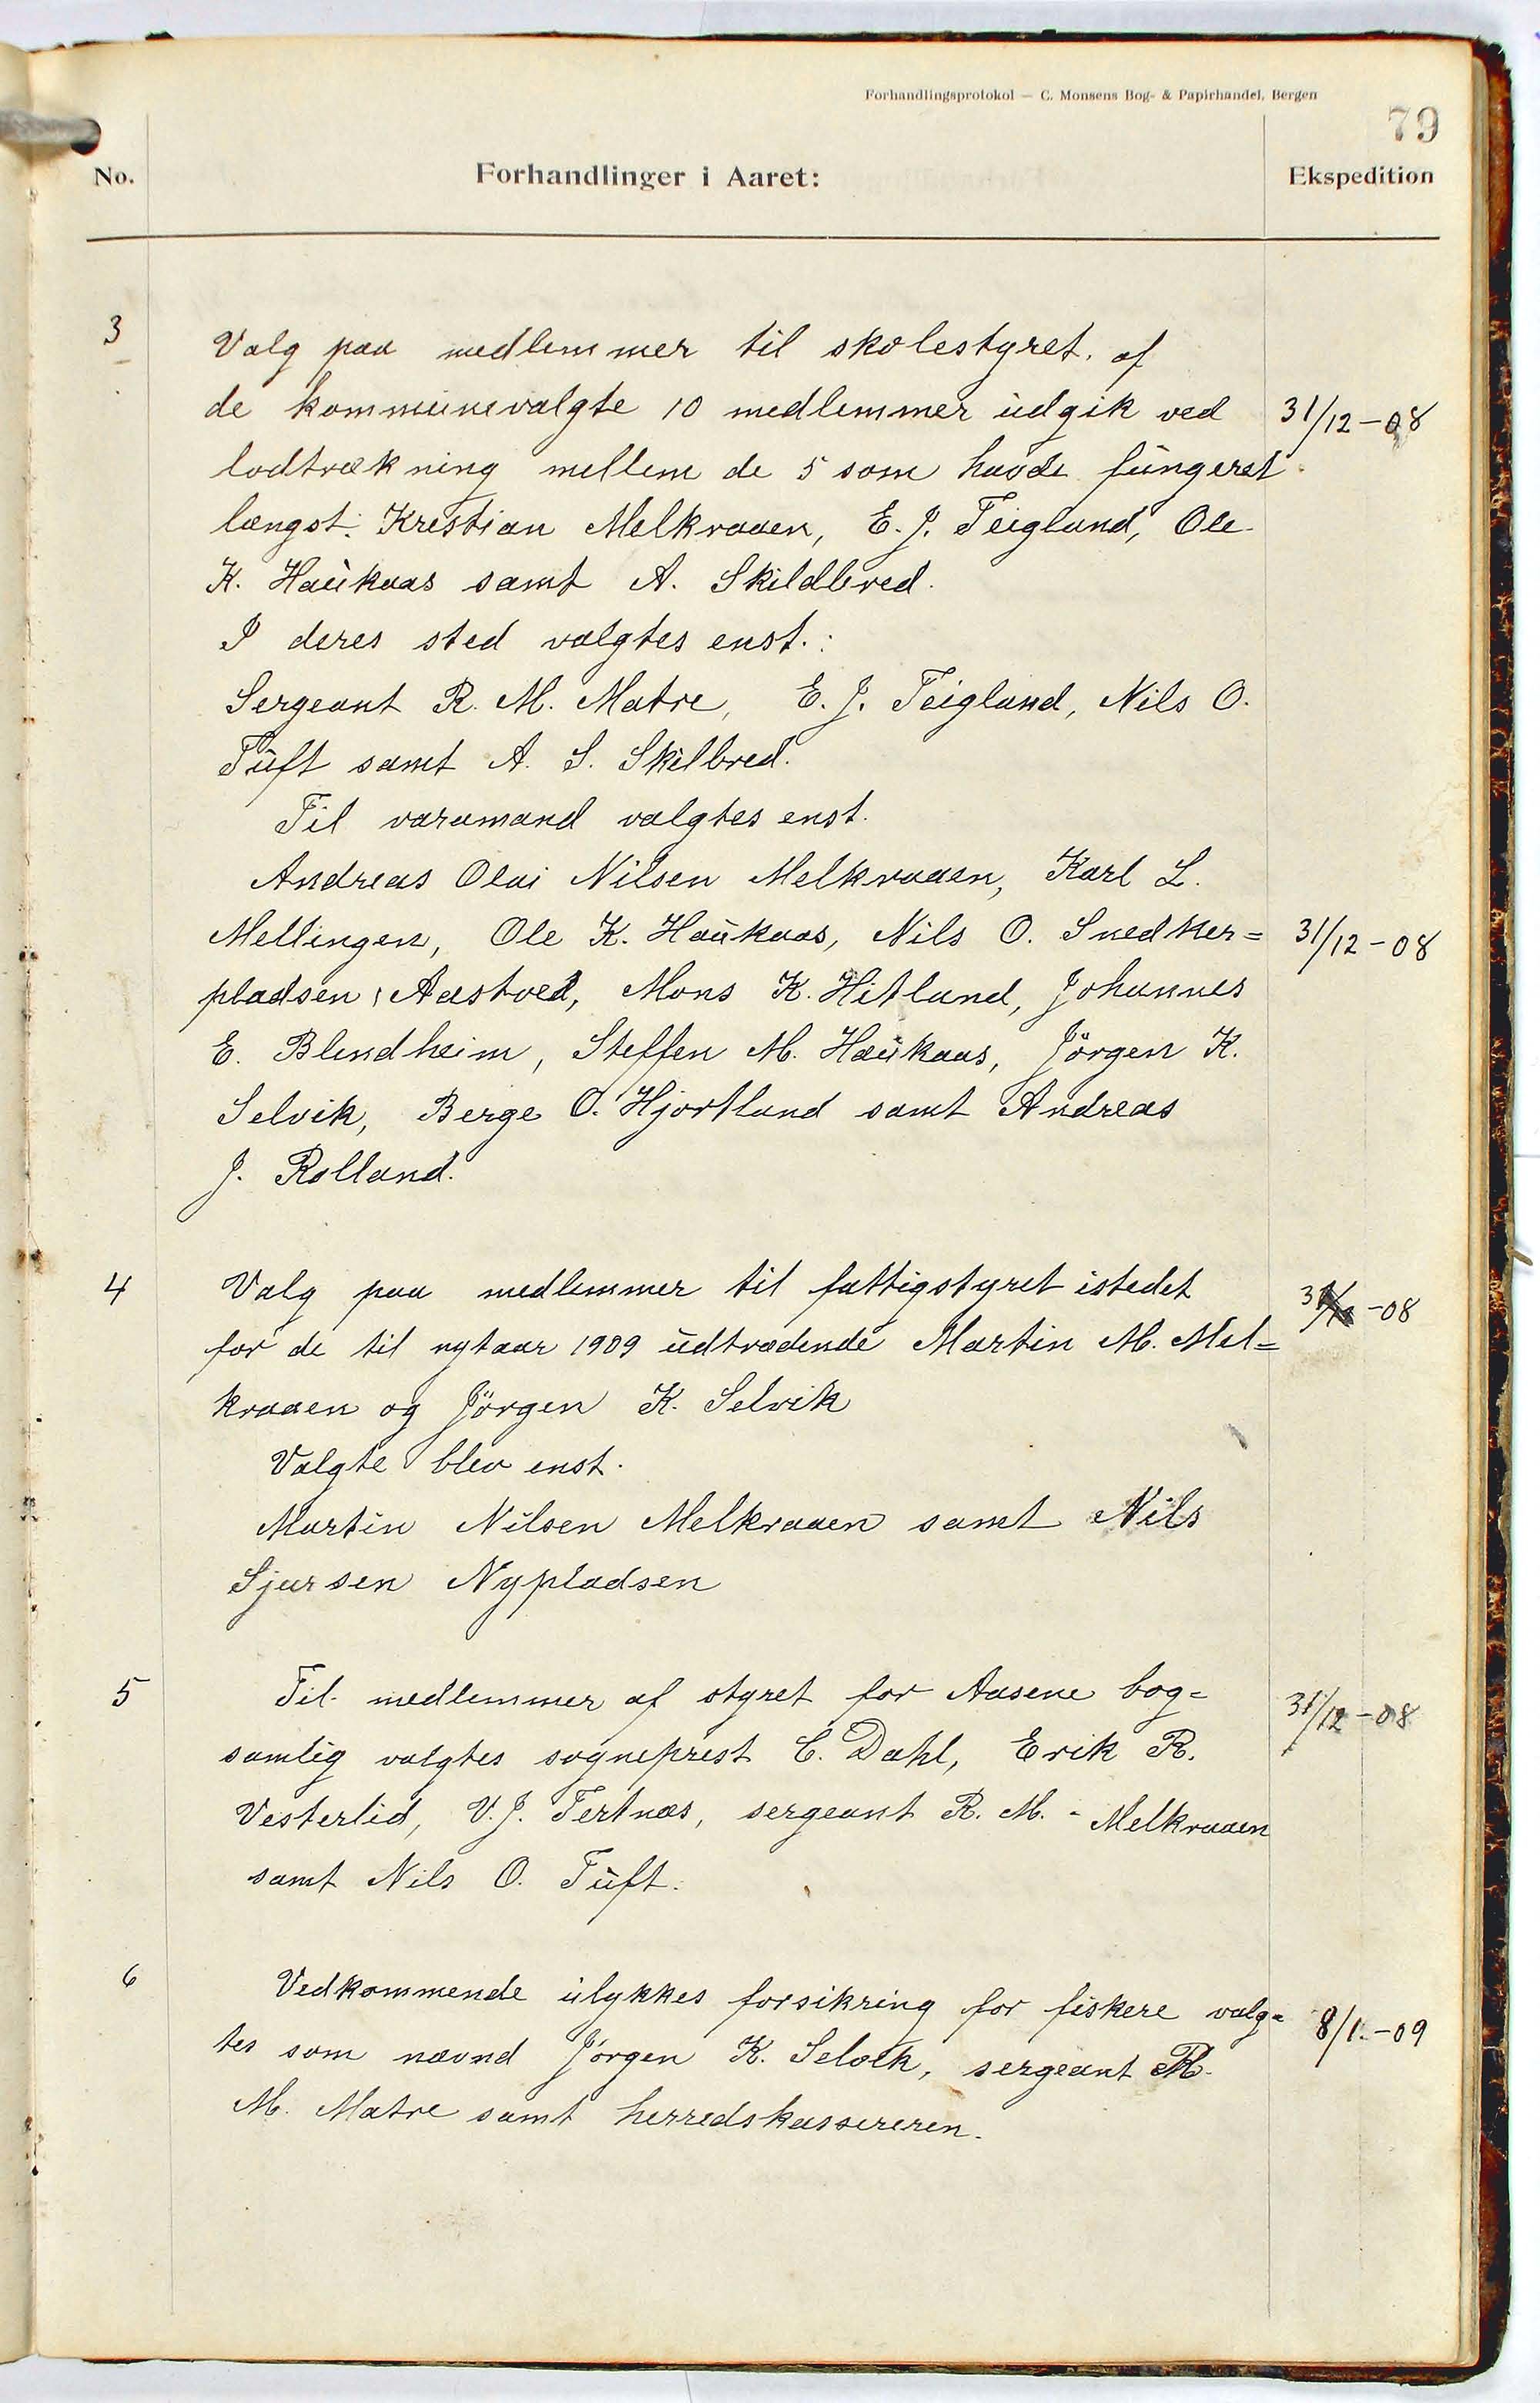 Forhandlingsprotokol — C. Monsens Bog- & Papirhandel, Bergen
79
No. Forhandlinger i Aaret: Ekspedition
3 Valg paa medlemmer til skolestyret. af
de kommunevalgte 10 medlemmer udgik ved 31/12-08
lodtrækning mellem de 5 som havde fungeret
længst: Kristian Melkraaen, E. J. Teigland, Ole
K. Haukaas samt A. Skildbred.
I deres sted valgtes enst.:
Sergeant R. M. Matre, E. J. Teigland, Nils O.
Tuft samt A. S. Skilbred.
Til varamand valgtes enst.
Andreas Olai Nilsen Melkraaen, Karl L.
Mellingen, Ole K. Haukaas, Nils O. Snedker= 31/12-08
pladsen, Aastved, Mons K. Hitland, Johannes
E. Blindheim, Steffen M. Haukaas, Jörgen K.
Selvik, Berge O. Hjortland samt Andreas
J. Rolland.
4 Valg paa medlemmer til fattigstyret istedet -08
for de til nytaar 1909 udtrædende Martin M. Mel=
kraaen og Jörgen K. Selvik
Valgte blev enst.
Martin Nilsen Melkraaen samt Nils
Sjursen Nypladsen
5 Til medlemmer af styret for Aasene bog= 31/12-08
samlig valgtes sogneprest C. Dahl, Erik R.
Vesterlid, V. J. Tertnæs, sergeant R. M. - Melkraaen
samt Nils O. Tuft.
6 Vedkommende ulykkes forsikring for fiskere valg= 8/1.-09
tes som nævnd Jörgen K. Selvik, sergeant R.
M. Matre samt herredskassereren.